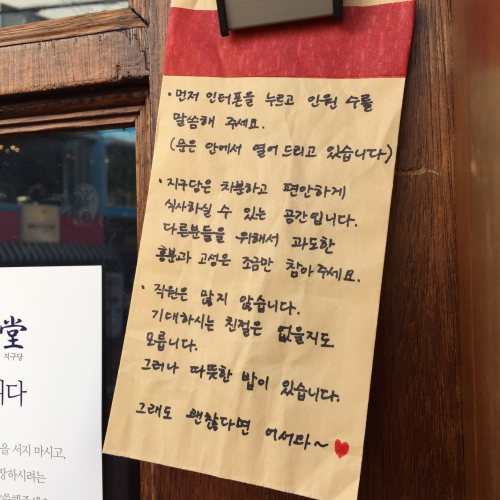 · 먼저 인터폰을 누르고 인원 수를
말씀해 주세요.
(문은 안에서 열어 드리고 있습니다)
· 지구당은 차분하고 편안하게
식사하실 수 있는 공간입니다.
다른분들을 위해서 과도한
흥분과 고성은 조금만 참아주세요.
· 직원은 많지 않습니다.
기대하시는 친절은 없을지도
모릅니다.
그러나 따뜻한 밥이 있습니다.
그래도 괜찮다면 어서와~ ♥
堂
지구당
을 서지 마시고,
장하시려는